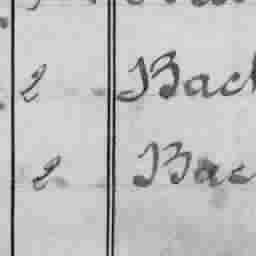 2 Bach
2 Bac